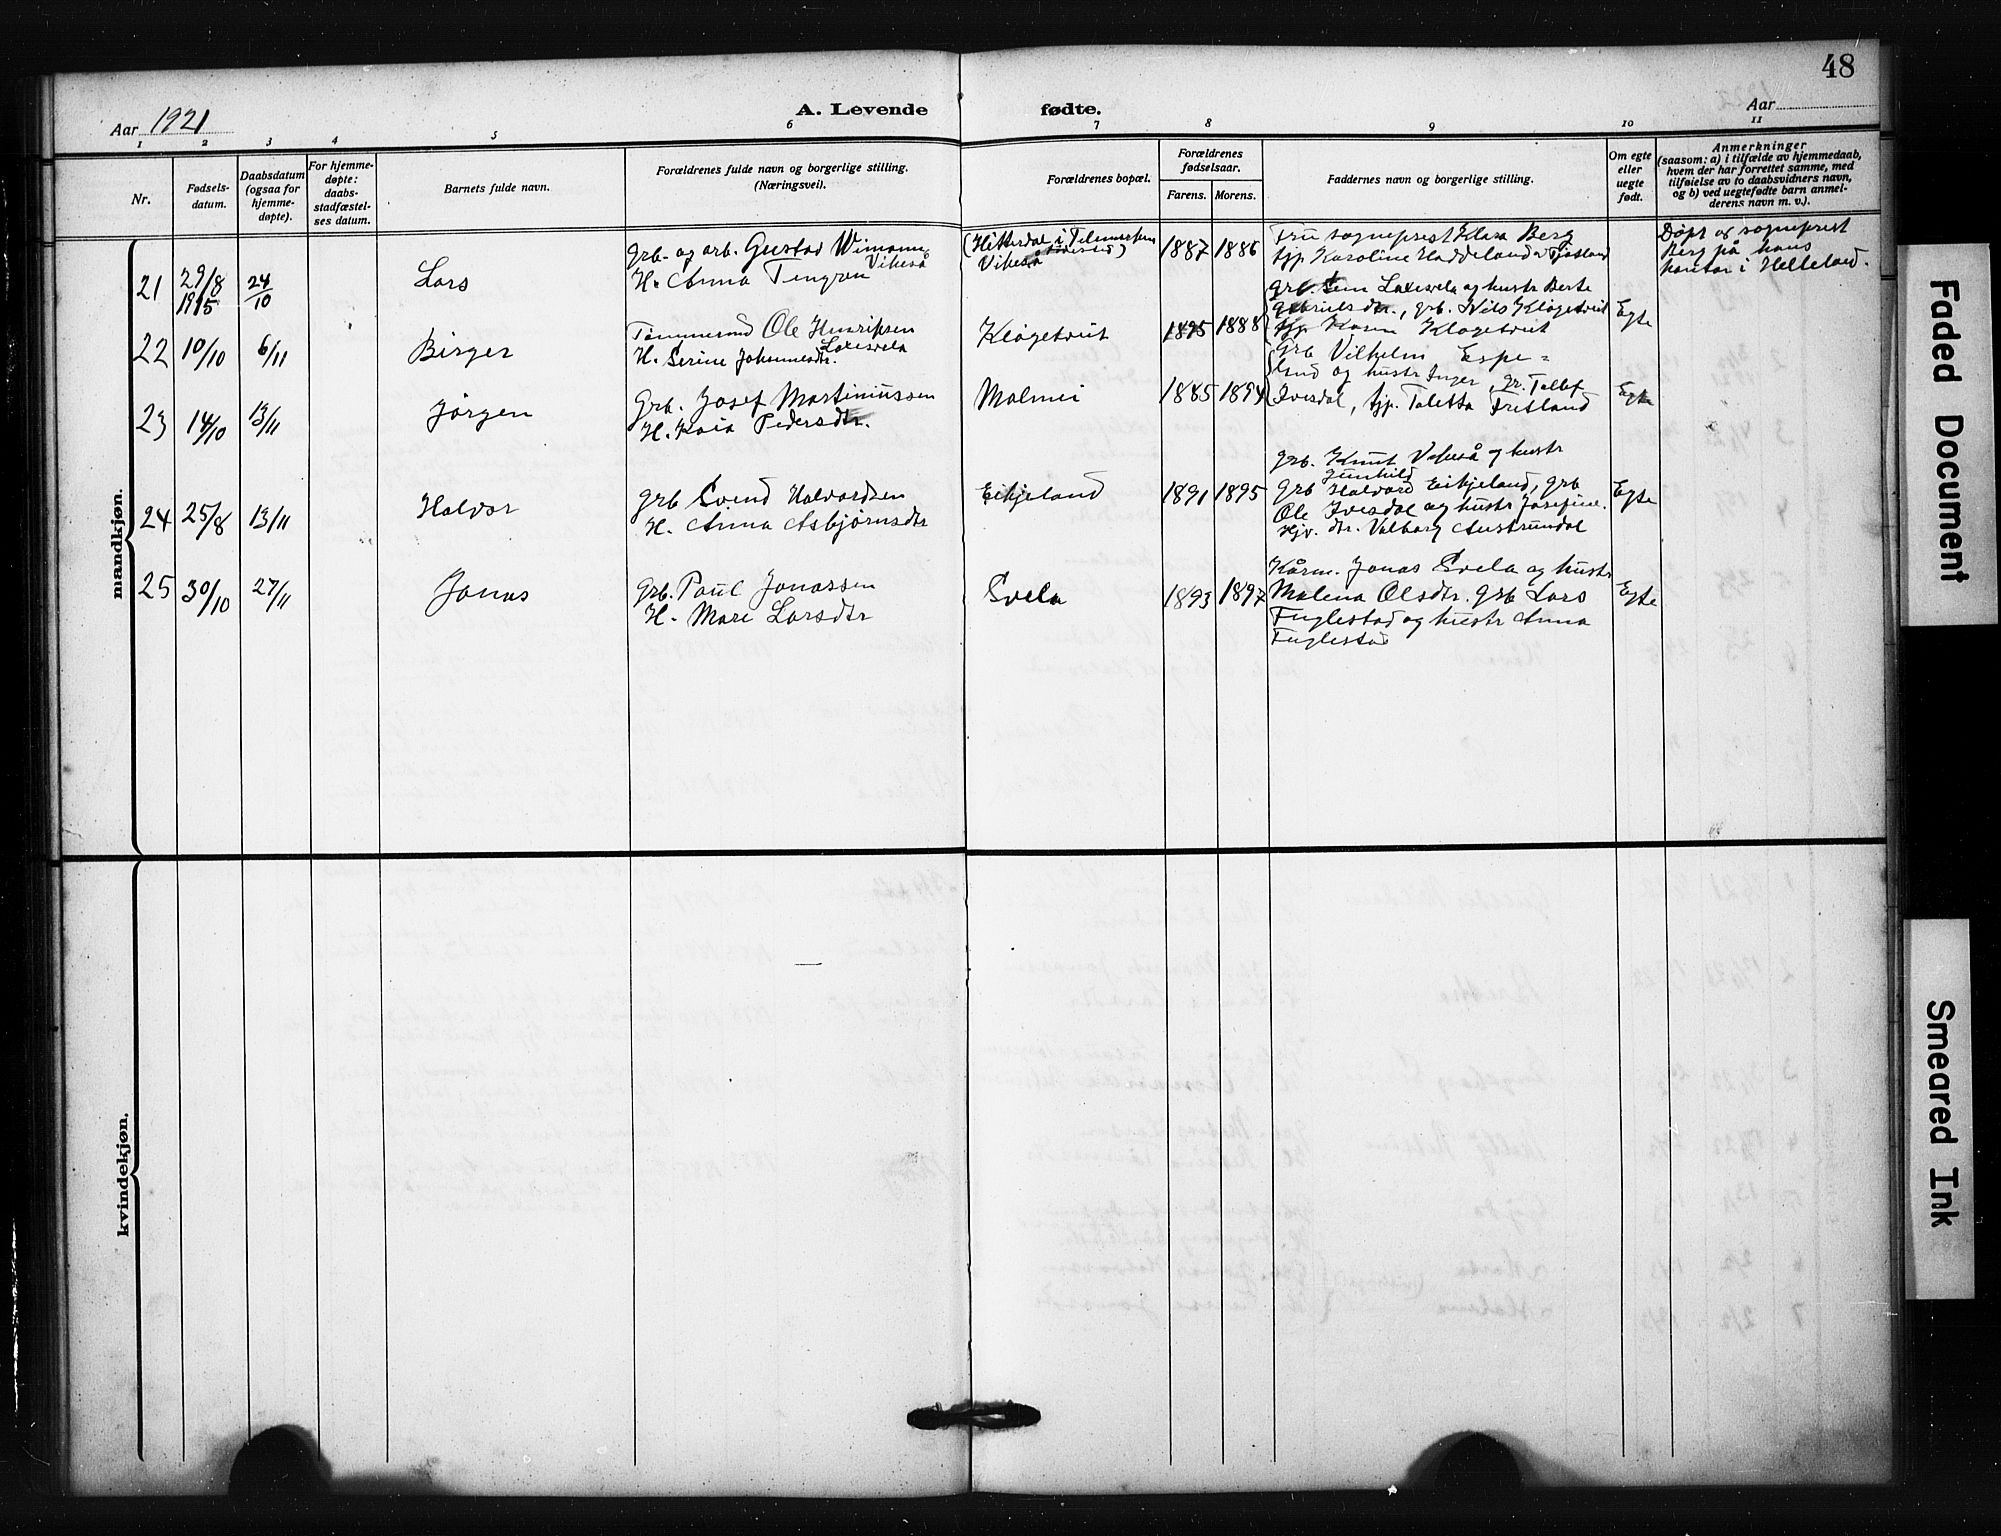 48
Aar 1921
A. Levende fødte.
Aar
1 2 3 4 5 6 7 8 9 10 11
Nr.
Fødsels-
datum.
Daabsdatum
(ogsaa for
hjemme-
døpte).
For hjemme-
døpte:
daabs-
stadfæstel-
ses datum.
Barnets fulde navn.
Forældrenes fulde navn og borgerlige stilling.
(Næringsvei).
Forældrenes bopæl.
Forældrenes
fødselsaar.
Farens. Morens.
Faddernes navn og borgerlige stilling.
Om egte
eller
uegte
født.
Anmerkninger
(saasom: a) i tilfælde av hjemmedaab,
hvem der har forrettet samme, med
tilføielse av to daabsvidners navn,
og b) ved uegtefødte barn anmel-
derens navn m. v.).
mandkjøn.
21
29/8
1915
24/10
Lars
Grb. og arb. Gustav Wimann
Vikeså
H. Anna Tengren
(Hitterdal i Telemarken
Vikeså
1887 1886
Fru sogneprest Klara Berg
tjp. Karoline Haddeland
Døpt av sogneprest
Berg på hans
kontor i Helleland.
22 10/10 6/11
Birger
Tømmermd Ole Henriksen
Laxesvela
H. Serine Johannesdtr.
Kløgetveit
1895 1888
Laxesvela og hustr Berte
Gabrielsdtr., grb. Nils Kløgetveit
tjp. Karen Kløgetveit
Egte
23 14/10 13/11
Jørgen
Grb. Josef Martiniussen
H. Kaia Pedersdtr.
Malmei
1885 1894
Grb Vilhelm Espe=
lund og hustr Inger, gr. Tollef
Ivesdal, tjp. Taletta Fritland
Egte
24 25/8 13/11
Halvor
Grb Svend Halvordsen
H. Anna Asbjørnsdtr
Eikjeland
1891 1895
Grb. Knut Vikeså og hustr
Gunhild
Grb Halvord Eikjeland, grb
Ole Ivesdal og hustr Josefine.
Hjv. dtr. Valborg Austrumdal
Egte
25 30/10 27/11
Jonas
Grb. Paul Jonassen
H. Mari Larsdtr
Svela
1893 1897
Kårm. Jonas Svela og hustr
Malena Olsdtr. Grb Lars
Fuglestad og hustr Anna
Fuglestad
Egte
kvindekjøn.
Faded Document
Smeared Ink